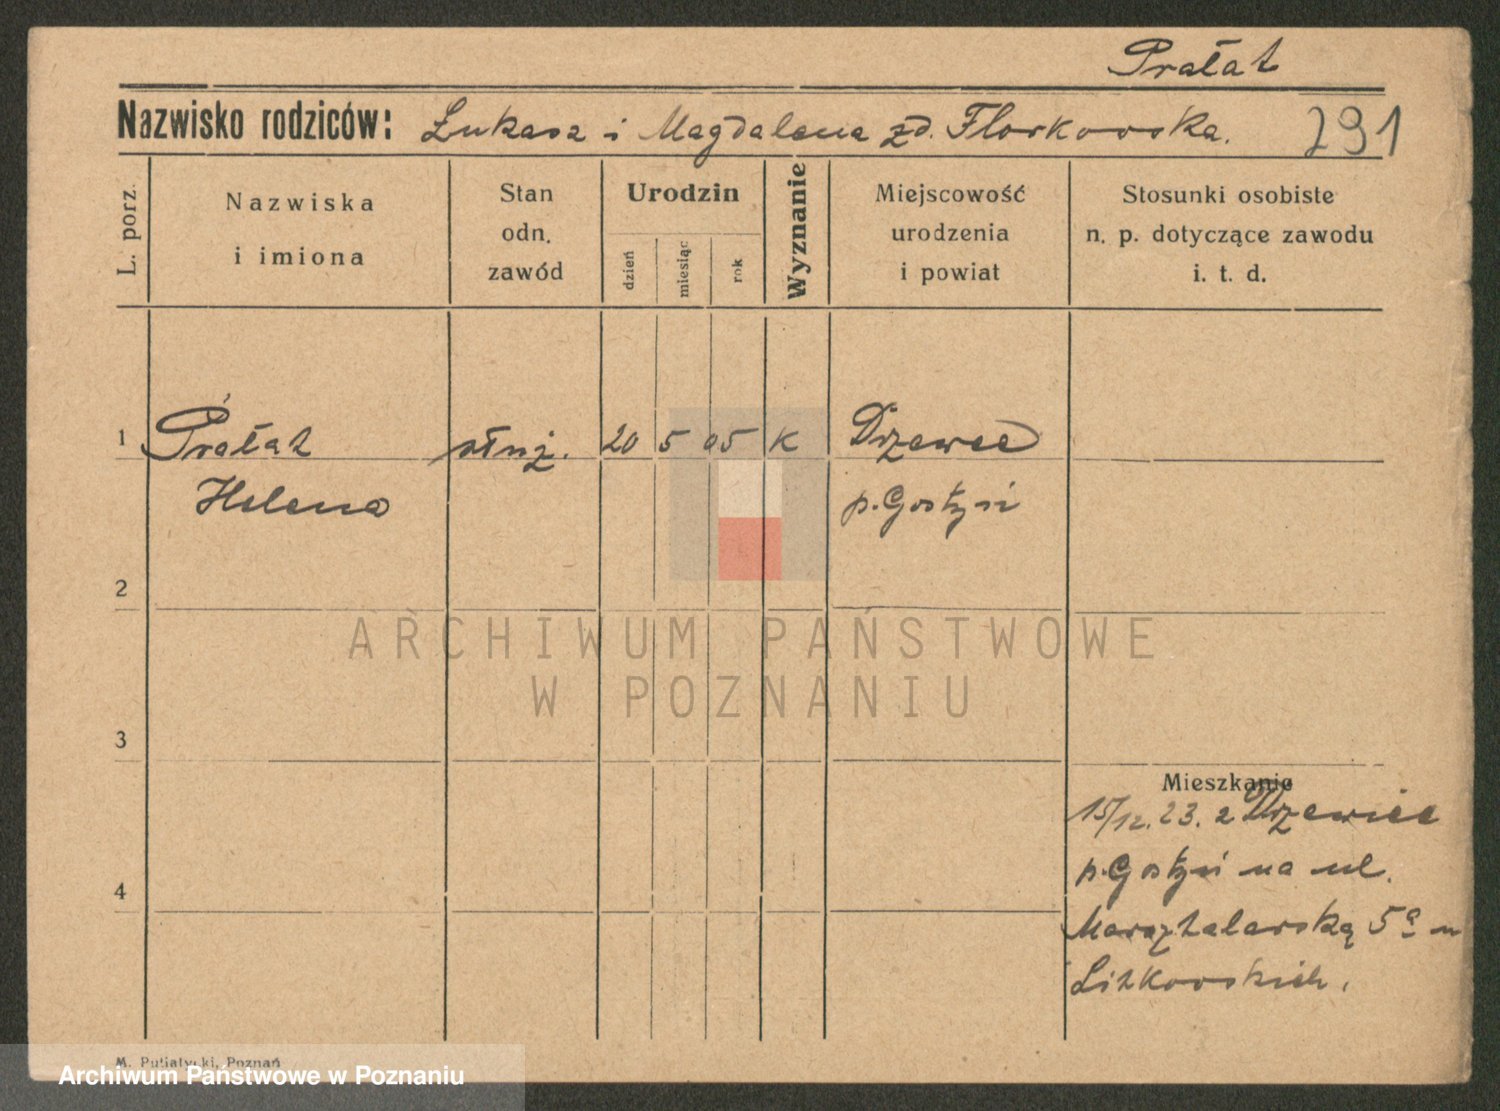 Prałat
Nazwisko rodziców: Łukasz i Magdalena zd. Florkowska. 291
L. porz.
Nazwiska
i imiona
Stan
odn.
zawód
Urodzin
dzień
miesiąc
rok
Wyznanie
Miejscowość
urodzenia
i powiat
Stosunki osobiste
n. p. dotyczące zawodu
i. t. d.
1 Prałat służ. 20 5 05 K Drzewce
Helena p. Gostyń
2
ARCHIWUM PAŃSTWOWE
W POZNANIU
3
Mieszkanie
15/12. 23. z Drzewiec
p. Gostyń na ul.
4
Marsztalarską 5a u
M. Putiatycki, Poznań
Archiwum Państwowe w Poznaniu